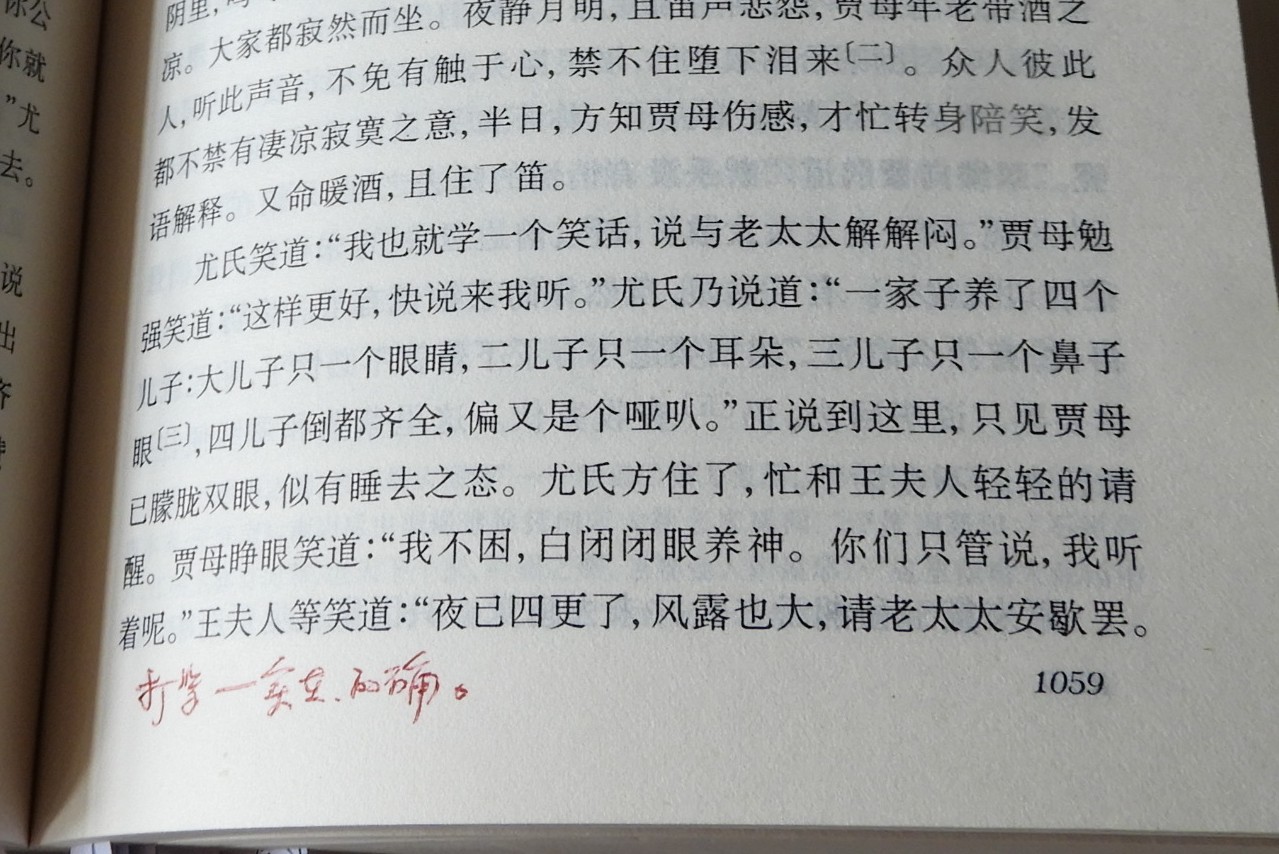 你公
你就
”尤
去。
说
出
阴里，
凉。大家都寂然而坐。夜静月明，且笛声悲怨，贾母年老带酒之
人，听此声音，不免有触于心，禁不住堕下泪来〔二〕。众人彼此
都不禁有凄凉寂寞之意，半日，方知贾母伤感，才忙转身陪笑，发
语解释。又命暖酒，且住了笛。
尤氏笑道：“我也就学一个笑话，说与老太太解解闷。”贾母勉
强笑道：“这样更好，快说来我听。”尤氏乃说道：“一家子养了四个
儿子：大儿子只一个眼睛，二儿子只一个耳朵，三儿子只一个鼻子
眼〔三〕，四儿子倒都齐全，偏又是个哑叭。”正说到这里，只见贾母
已朦胧双眼，似有睡去之态。尤氏方住了，忙和王夫人轻轻的请
醒。贾母睁眼笑道：“我不困，白闭闭眼养神。你们只管说，我听
着呢。”王夫人等笑道：“夜已四更了，风露也大，请老太太安歇罢。
1059